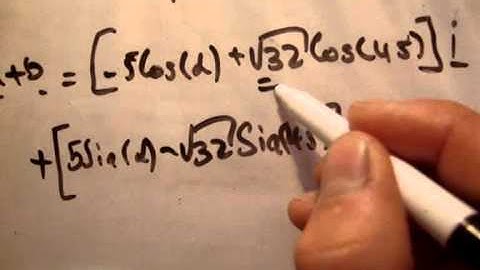 a+b = [-5Cos(α)+√32 Cos(45)] i
+[5Sin(α)-√32 Sin(45)